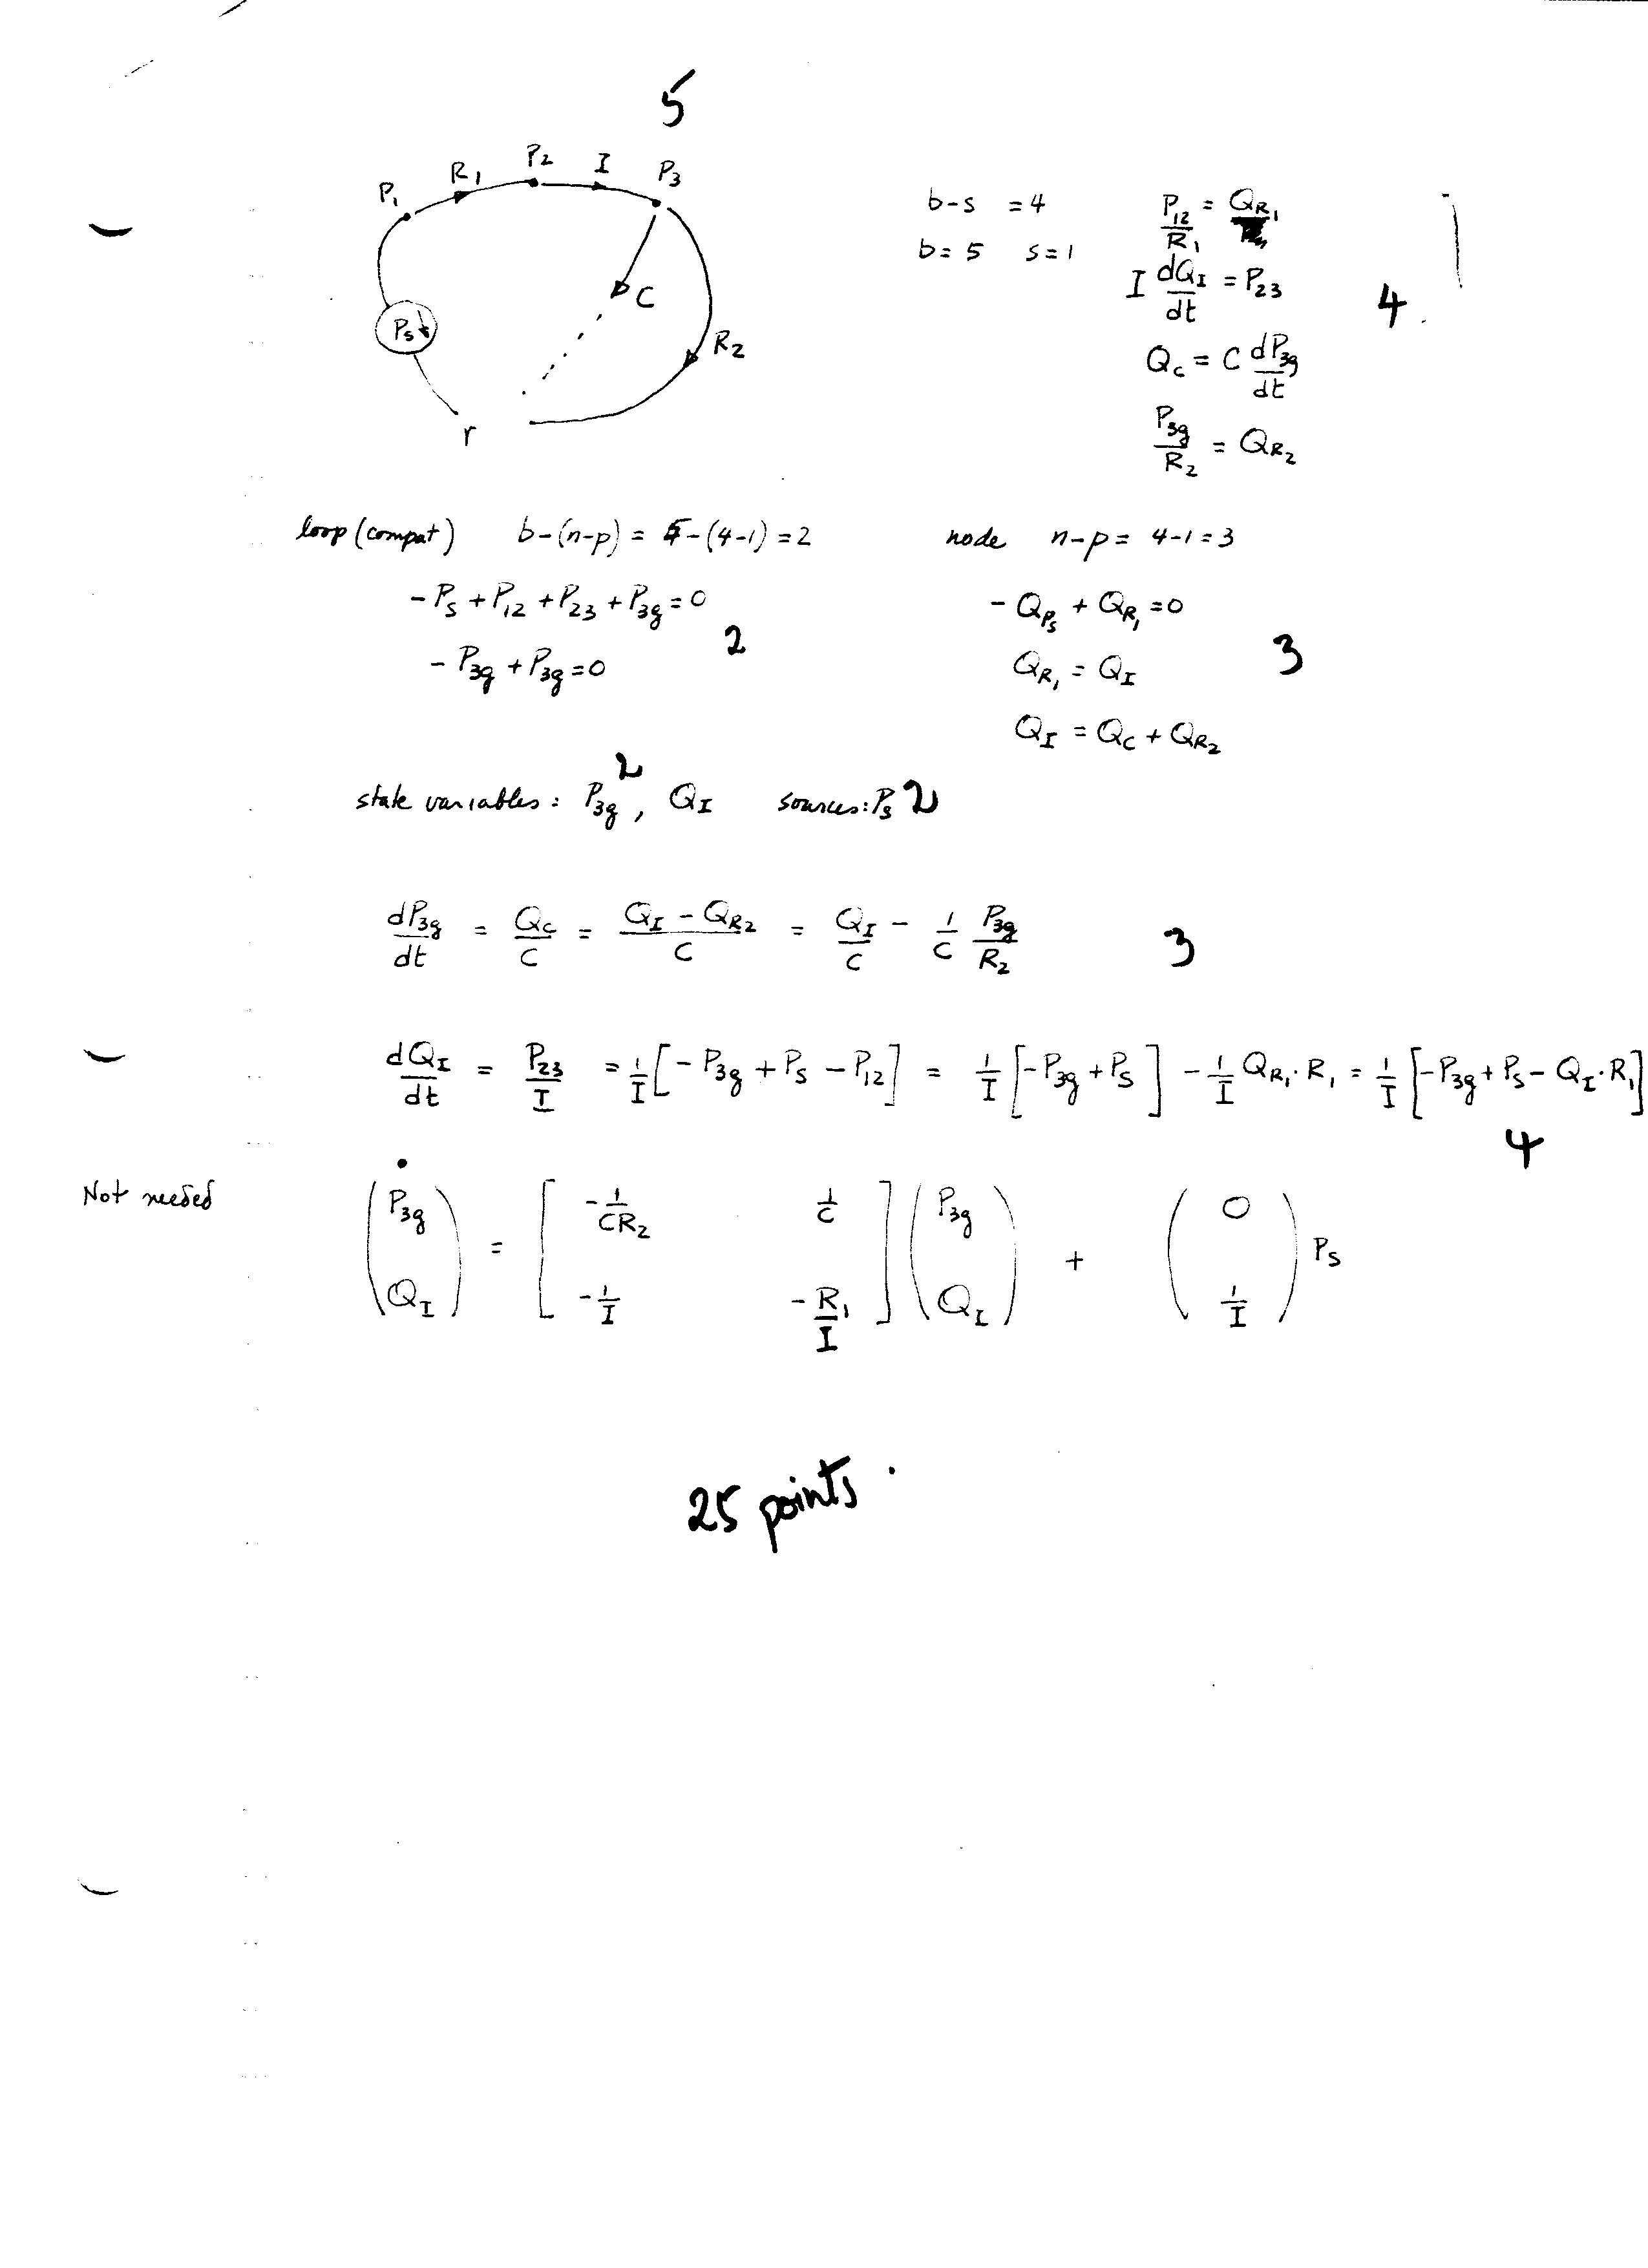 5
P₁ R₁ P₂ I P₃
Ps C R₂
r
b-s = 4
b = 5 s = 1
P₁₂/R₁ = Q_R₁
I dQ_I/dt = P₂₃
4
Q_c = C dP₃g/dt
P₃g/R₂ = Q_R₂
loop (compat) b-(n-p) = 5-(4-1) = 2
-Ps + P₁₂ + P₂₃ + P₃g = 0
-P₃g + P₃g = 0
2
node n-p = 4-1 = 3
-Q_Ps + Q_R₁ = 0
Q_R₁ = Q_I
3
Q_I = Q_C + Q_R₂
2
state variables: P₃g, Q_I sources: Ps 2
dP₃g/dt = Q_c/C = (Q_I - Q_R₂)/C = Q_I/C - 1/C P₃g/R₂
3
dQ_I/dt = P₂₃/I = 1/I [-P₃g + Ps - P₁₂] = 1/I [-P₃g + Ps] - 1/I Q_R₁·R₁ = 1/I [-P₃g + Ps - Q_I·R₁]
4
Not needed
(P₃g Q_I)˙ = [-1/CR₂ 1/C -1/I -R₁/I] (P₃g Q_I) + (0 1/I) Ps
25 points.